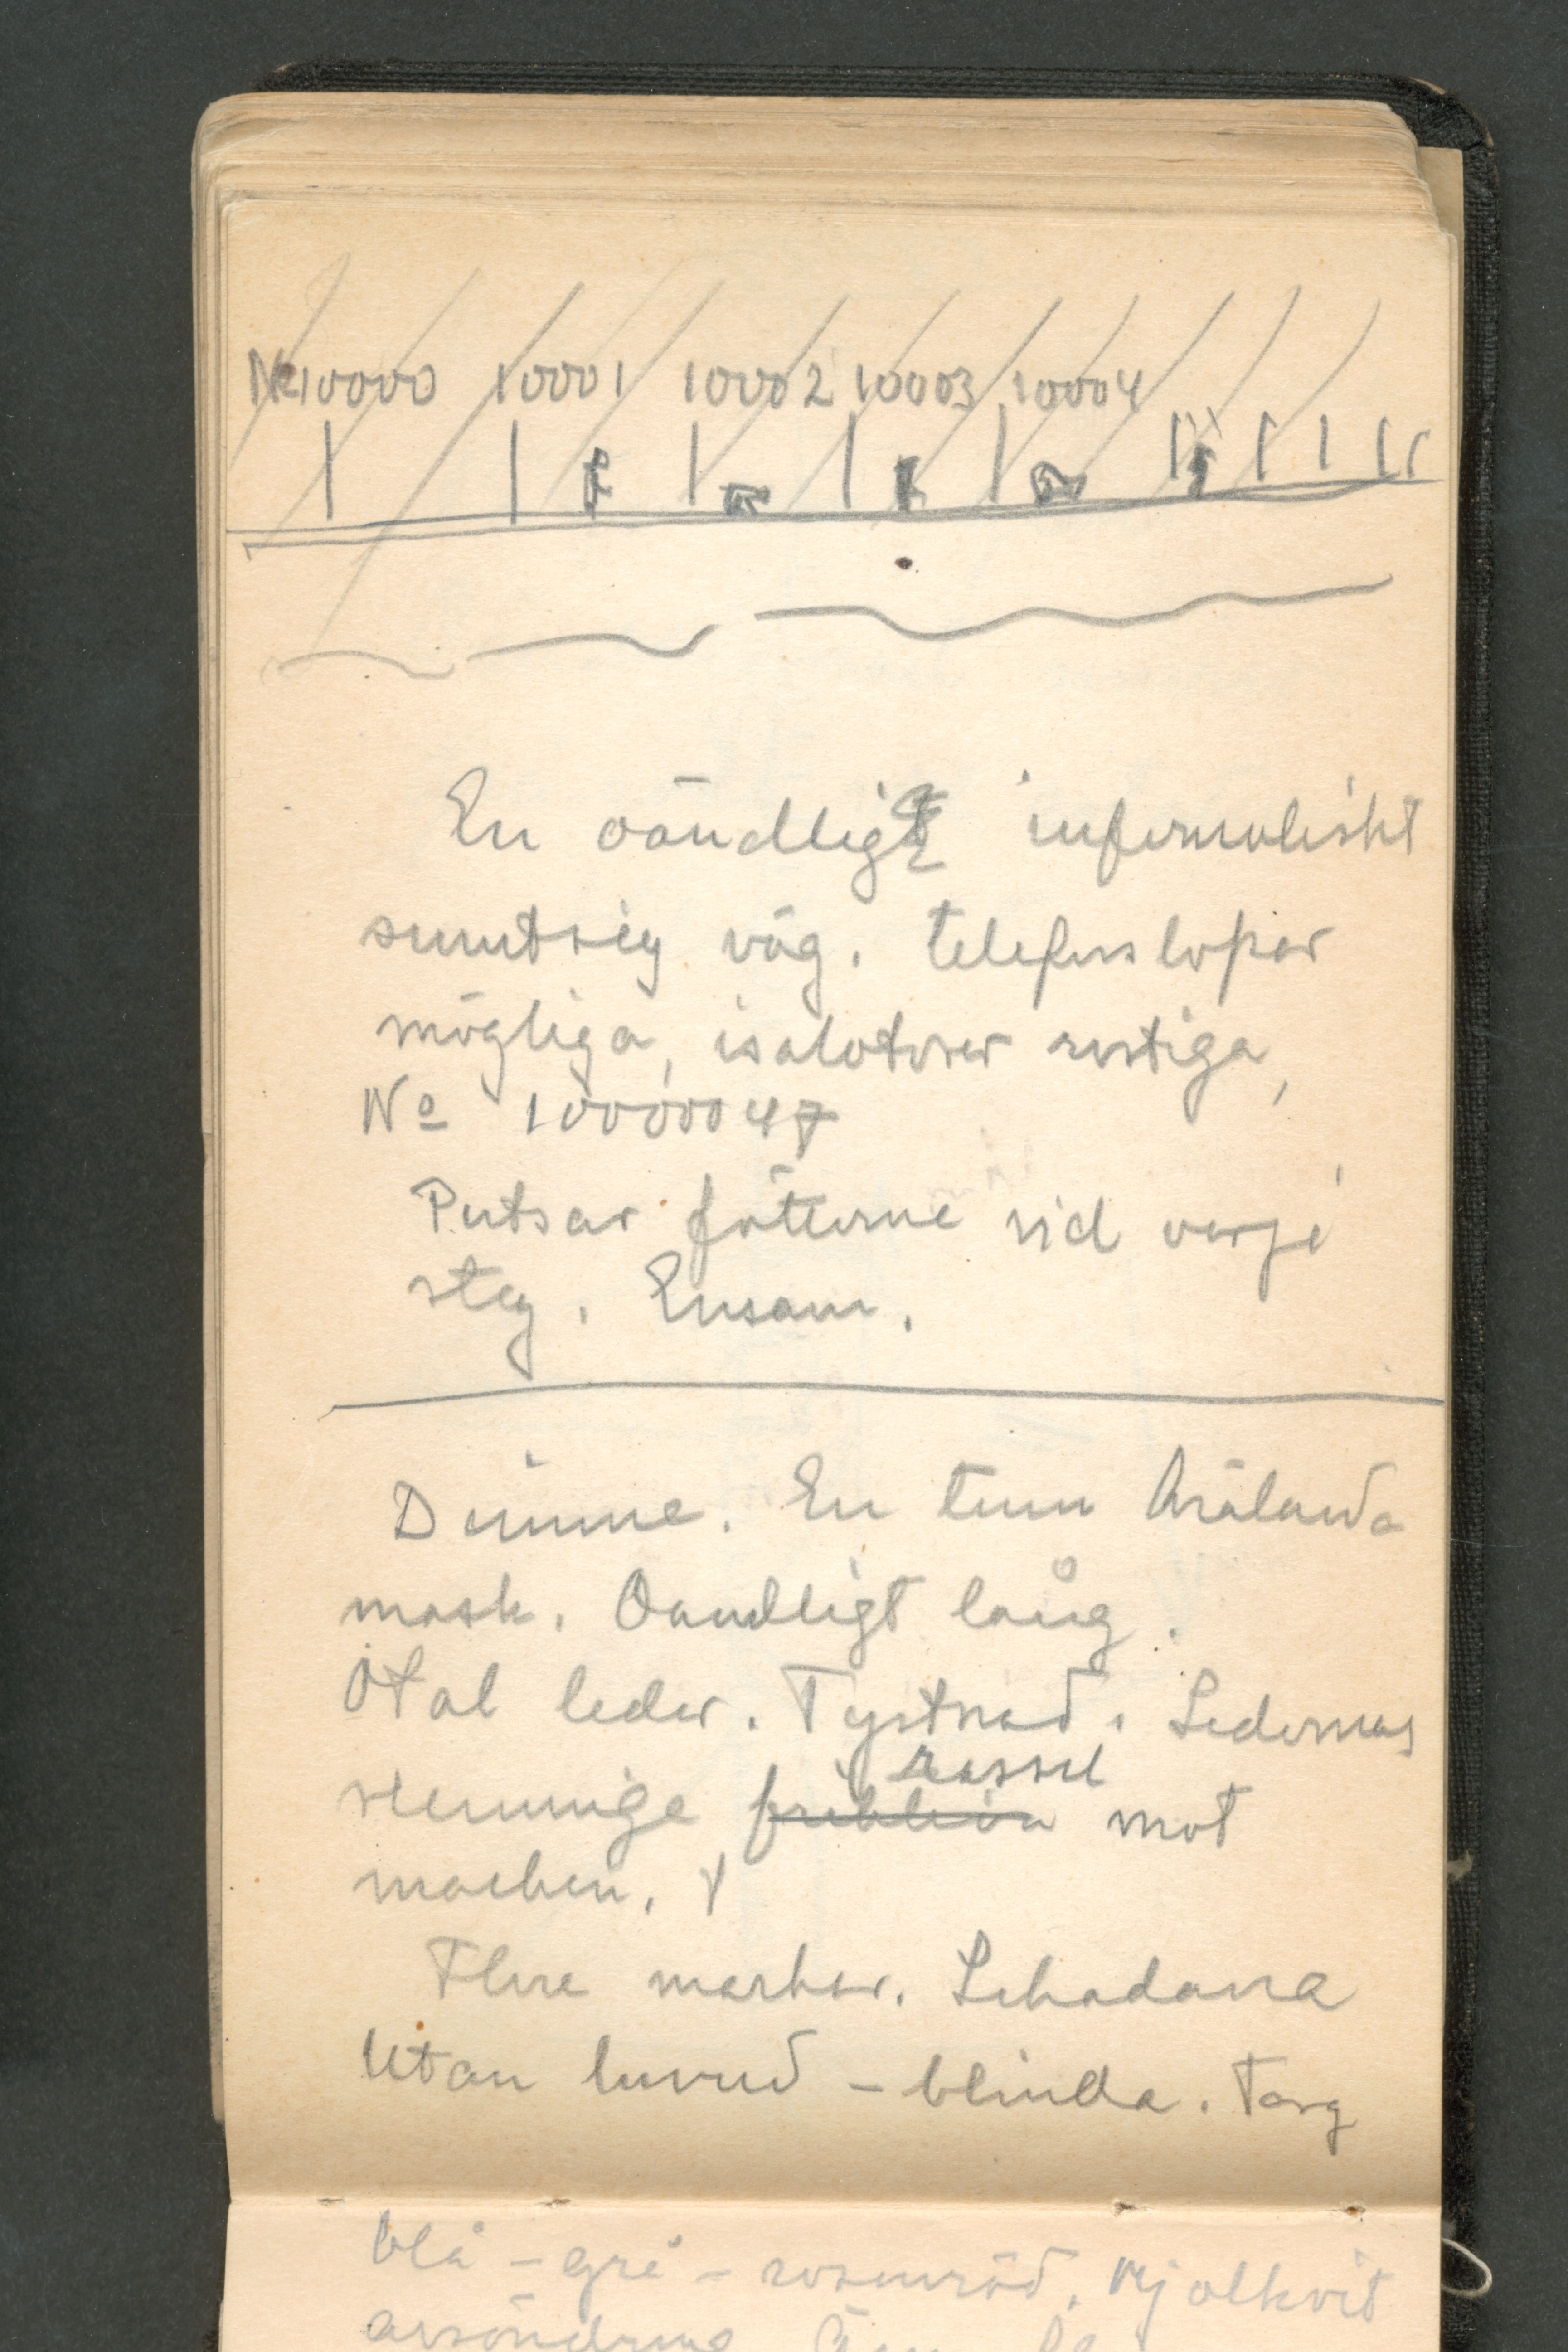 No 10000 10001 10002 10003 10004
En oändligt infernaliskt
smutsig väg. Telefonstolpar
mögliga, isolatorer rostiga,
No 10000047
Putsar fötterne vid varje
steg. Ensam.
Dimme. En tunn krälande
mask. Oändligt lång.
Otal leder. Tystnad. Ledernas
slemmiga friktion rassel mot
marken.
Flere maskar. Lekadana
Utan huvud - blinda. Färg
blå - grå - rosenröd. Mjölkvit
avsöndring